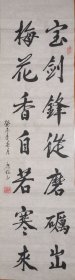 宝剑鋒從磨礪出
梅花香自苦寒来